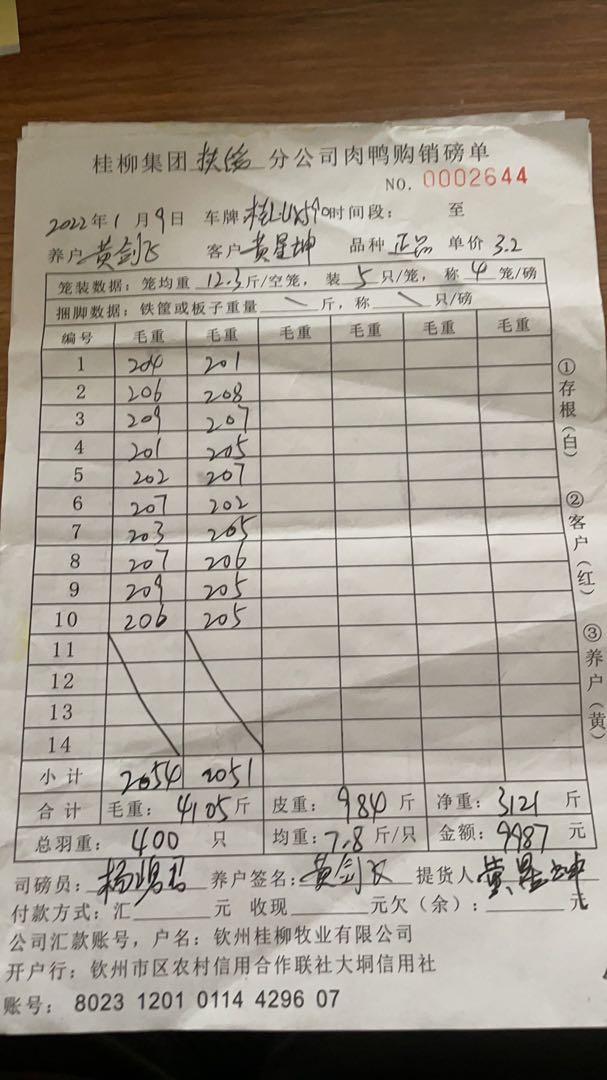 桂柳集团扶绥分公司肉鸭购销磅单
NO. 0002644
2022年1月9日 车牌 时间段： 至
养户 黄剑飞 客户 黄星坤 品种 正品 单价 3.2
笼装数据：笼均重 12.3 斤/空笼，装 5 只/笼，称 4 笼/磅
捆脚数据：铁筐或板子重量 \ 斤，称 \ 只/磅
编号 毛重 毛重 毛重 毛重 毛重 毛重
1 204 201
2 206 208
3 209 207
4 201 205
5 202 207
6 207 202
7 203 205
8 207 206
9 209 205
10 206 205
11
12
13
14
小计 2054 2051
合计 毛重：4105斤 皮重：984斤 净重：3121斤
总羽重：400只 均重：7.8斤/只 金额：9987元
①存根（白）
②客户（红）
③养户（黄）
司磅员： 养户签名：黄剑飞 提货人 黄星坤
付款方式：汇 元 收现 元欠（余）： 元
公司汇款账号，户名：钦州桂柳牧业有限公司
开户行：钦州市区农村信用合作联社大垌信用社
账号：8023 1201 0114 4296 07